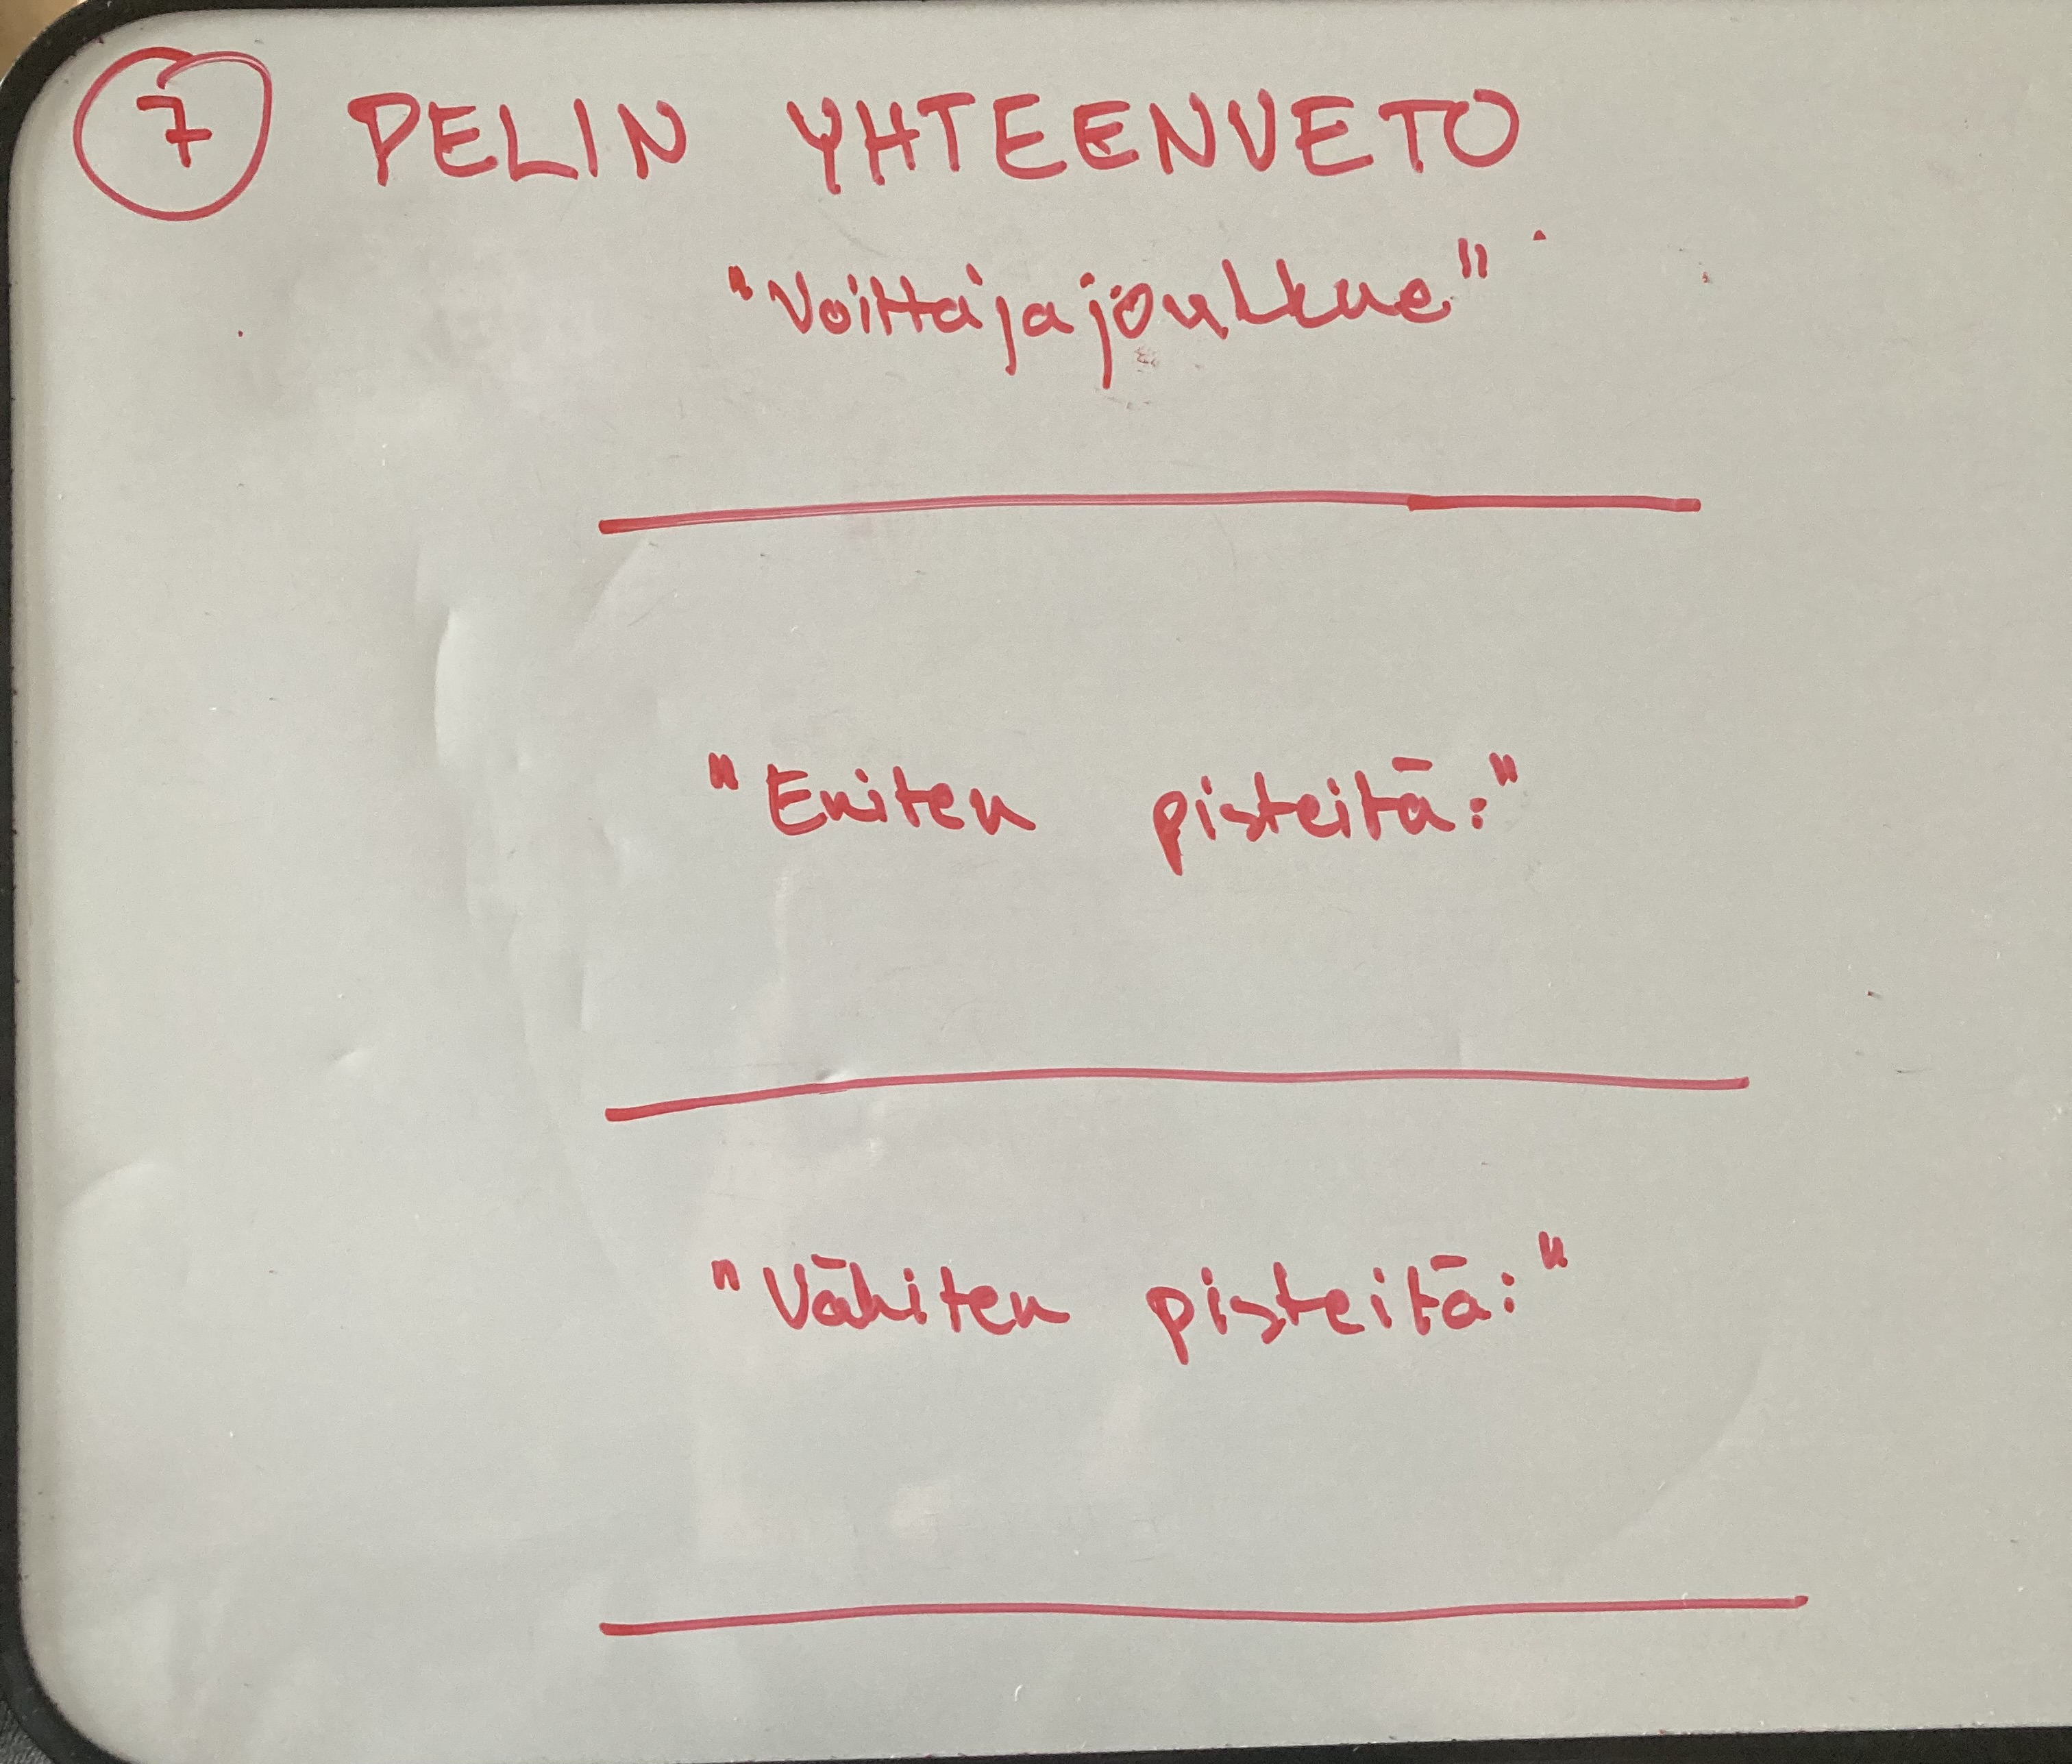 7 PELIN YHTEENVETO
"Voittajajoukkue"
"Eniten pisteitä:"
"Vähiten pisteitä:"